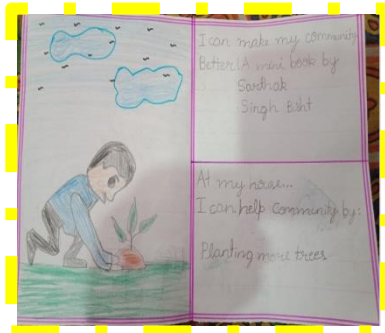 I can make my community
Better! A mini book by
Sarthak
Singh Bisht
At my house...
I can help Community by:
Planting more trees